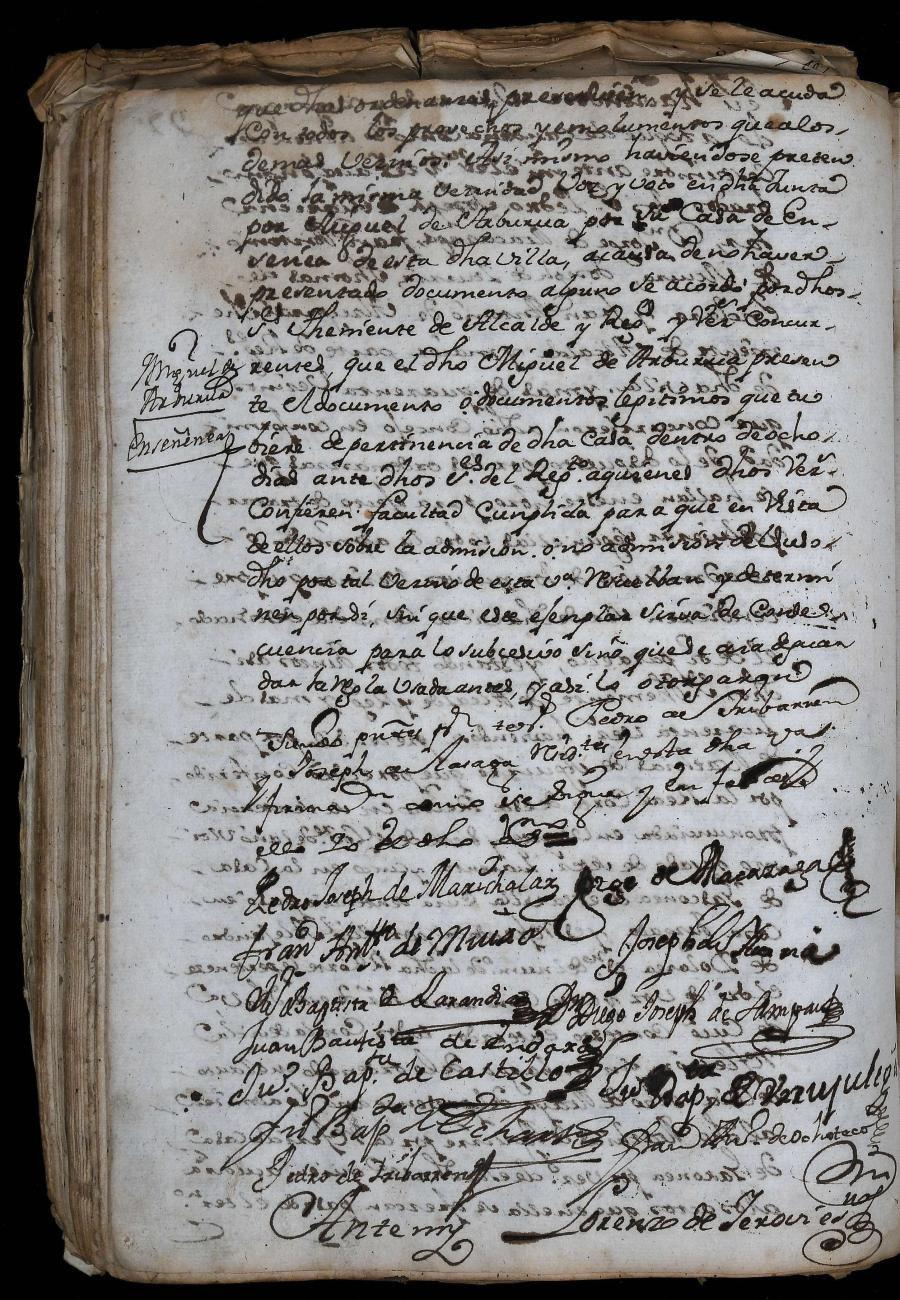 que dhas ordenanzas previenen y se le acuda
Con todos los provechos y emolumentos que a los
demas Vezinos. Assi mismo haviendose preten
dido la misma vezindad Voz y voto en dha Junta
por Miguel de Arburua por su Casa de En
senea de esta dha villa, acausa de no haver
presentado documento alguno se acordó por dhos
Ss. Theniente de Alcalde y Regᵒ y Vezˢ Concur
rentes, que el dho Miguel de Arburua presen
te el documento o documentos lexitimos que tu
biere de pertinencia de dha Casa dentro de ocho
dias ante dhos Sʳᵉˢ del Regᵗᵒ aquienes dhos Vezˢ
Confieren facultad Cumplida para que en Vista
de ellos sobre la admision o no admision del suso
dho por tal Vezino de esta vᵃ Resuelban y determi
nen por si, sin que este ejemplar sirva de Conse
cuencia para lo subcesivo sino que se aia de guar
dar la regla Usada antes, y asi lo otorgaron
Siendo pntes por tesᵗ Pedro de Iribarren
y Joseph de Lasaga Residᵗᵉˢ en esta dha vᵃ
firmaron como se sigue y en fee de
ello Yo el dho Sⁿᵒ
Miguel de
Arburua
Enseñenea
Pedro Joseph de Marichalar Jorge de
Franᶜᵒ Antᵒ de Joseph de
Juᵒ Baptista de Larandia Diego Joseph de
Juan Bautista de Endara
Juᵒ Bapᵗᵃ de Castillo Juᵒ Bapᵗᵃ de
Juᵒ Bapᵗᵃ de Echave Franᶜᵒ de Ochoteco
Pedro de Iribarren
Ante mi Lorenzo de